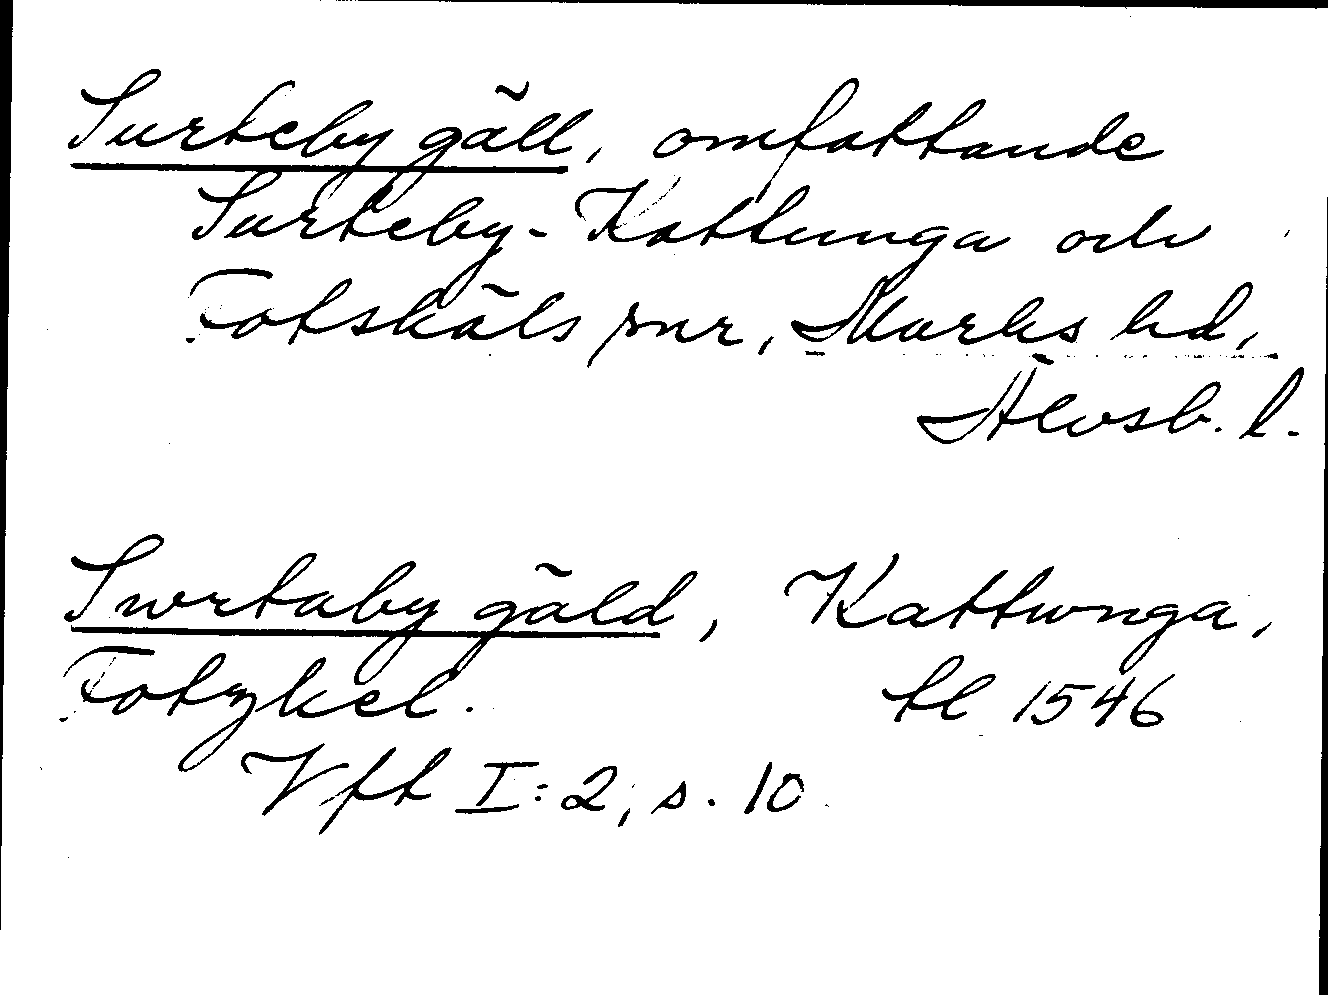 Surteby gäll, omfattande
Surteby-Kattunga och
Fotskäls snr, Marks hd,
Älvsb. l.
Swrtaby gäld, Kattwnga,
Fotzkel. tl 1546
Vft I:2, s. 10